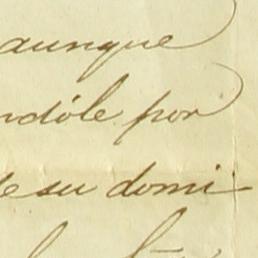 aunque
ndóle por
de su domi-